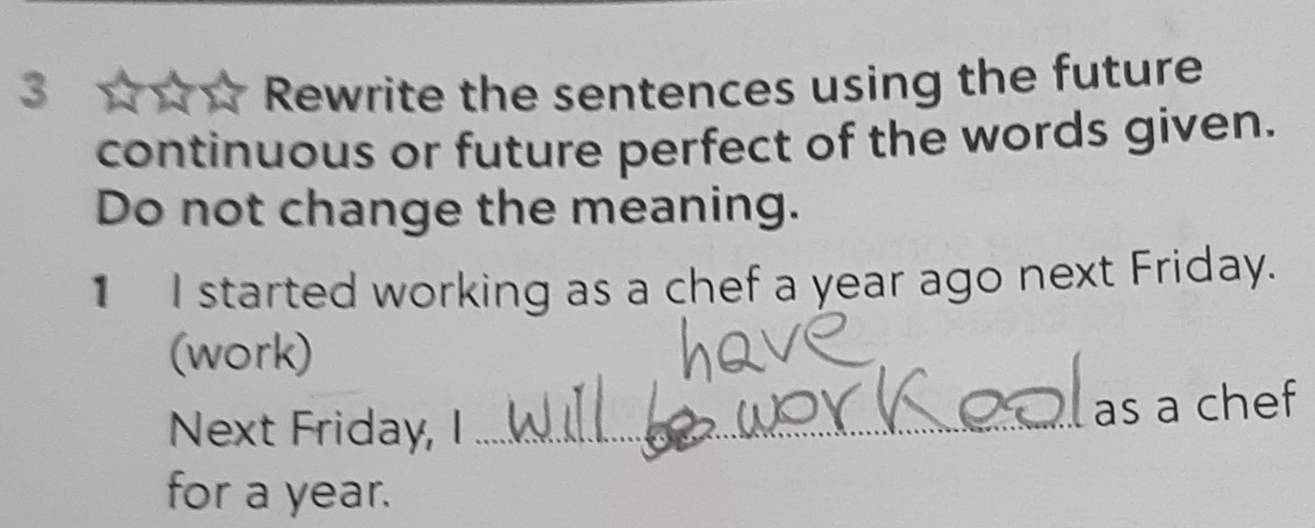 3 ☆☆☆ Rewrite the sentences using the future
continuous or future perfect of the words given.
Do not change the meaning.
1 I started working as a chef a year ago next Friday.
(work)
have
Next Friday, I will be worked as a chef
for a year.